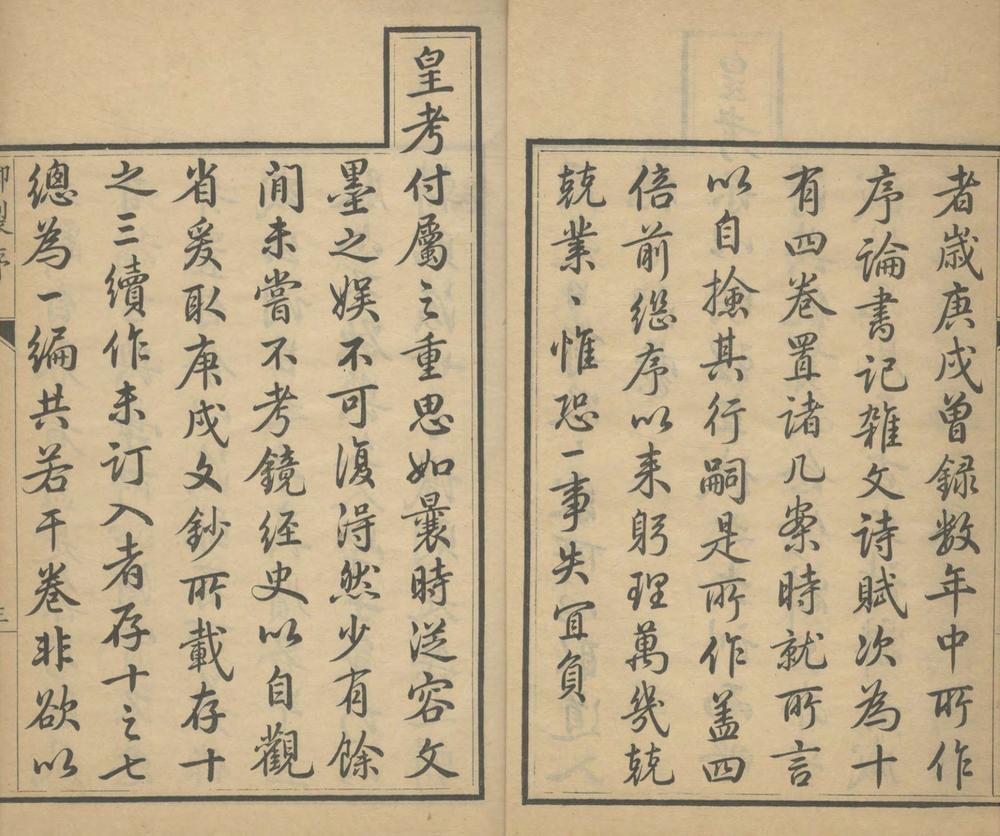 者歲庚戌曾録数年中所作
序論書記雜文詩賦次為十
有四卷置諸几案時就所言
以自撿其行嗣是所作盖四
倍前緫序以来躬理萬幾兢
兢業〻惟恐一事失宜負
皇考付屬之重思如曩時従容文
墨之娱不可復淂然少有餘
閒未嘗不考鏡経史以自觀
省爰取庚戌文鈔所載存十
之三續作未訂入者存十之七
總為一編共若干卷非欲以
御製序
三